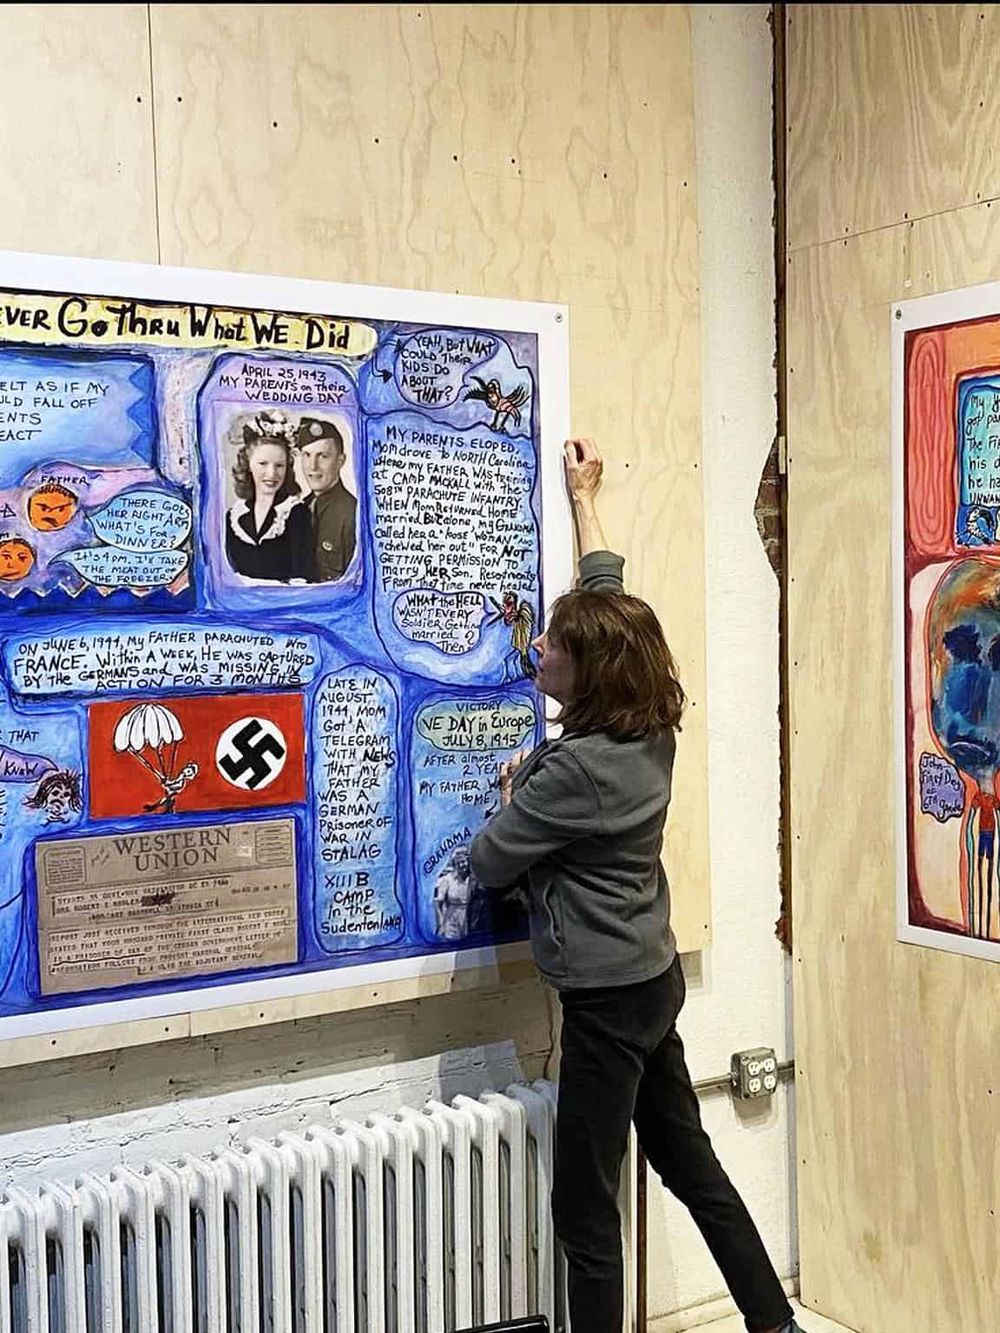 EVER Go Thru What WE Did
ELT AS IF MY
ULD FALL OFF
ENTS
EACT
FATHER
THERE GOES
HER RIGHT ARM
WHAT'S FOR
DINNER?
It's 4 pm. I'll TAKE
THE MEAT OUT OF
THE FREEZER
APRIL 25, 1943
MY PARENTS on Their
WEDDING DAY
YEAH, BUT WHAT
COULD THEIR
KIDS DO
ABOUT
THAT?
MY PARENTS ELOPED.
Mom drove to NORTH Carolina
where my FATHER WAS training
at CAMP MACKALL with the
508th PARACHUTE INFANTRY.
WHEN Mom RETURNED HOME
married But alone, my GRANDMA
called her a "loose" WOMAN" AND
"chewed her out" FOR NOT
GETTING PERMISSION TO
marry HER Son. Resentments
From that time never healed
WHAT the HELL
WASN'T EVERY
Soldier Getting
married
Then?
ON JUNE 6, 1944, My FATHER PARACHUTED INTO
FRANCE. Within A WEEK, HE WAS CAPTURED
BY the GERMANS and WAS MISSING IN
ACTION FOR 3 MONTHS
THAT
KNEW
LATE IN
AUGUST,
1944, MOM
Got A
TELEGRAM
WITH NEWS
THAT MY
FATHER
WAS A
GERMAN
Prisoner OF
WAR IN
STALAG
XIII B
CAMP
In the
Sudentonland
VICTORY
VE DAY in Europe
JULY 8, 1945
AFTER almost
2 YEA
MY FATHER WA
HOME,
GRANDMA
WESTERN
UNION
REPORT JUST RECEIVED THROUGH THE INTERNATIONAL RED CROSS
STATES THAT YOUR HUSBAND PRIVATE FIRST CLASS ROBERT E
IS A PRISONER OF WAR OF THE GERMAN GOVERNMENT LETTER OF
INFORMATION FOLLOWS FROM PROVOST MARSHAL GENERAL
THE ADJUTANT GENERAL
My
got
The
his
he ha
UNWAN
John-
First Day
of
6th Grade